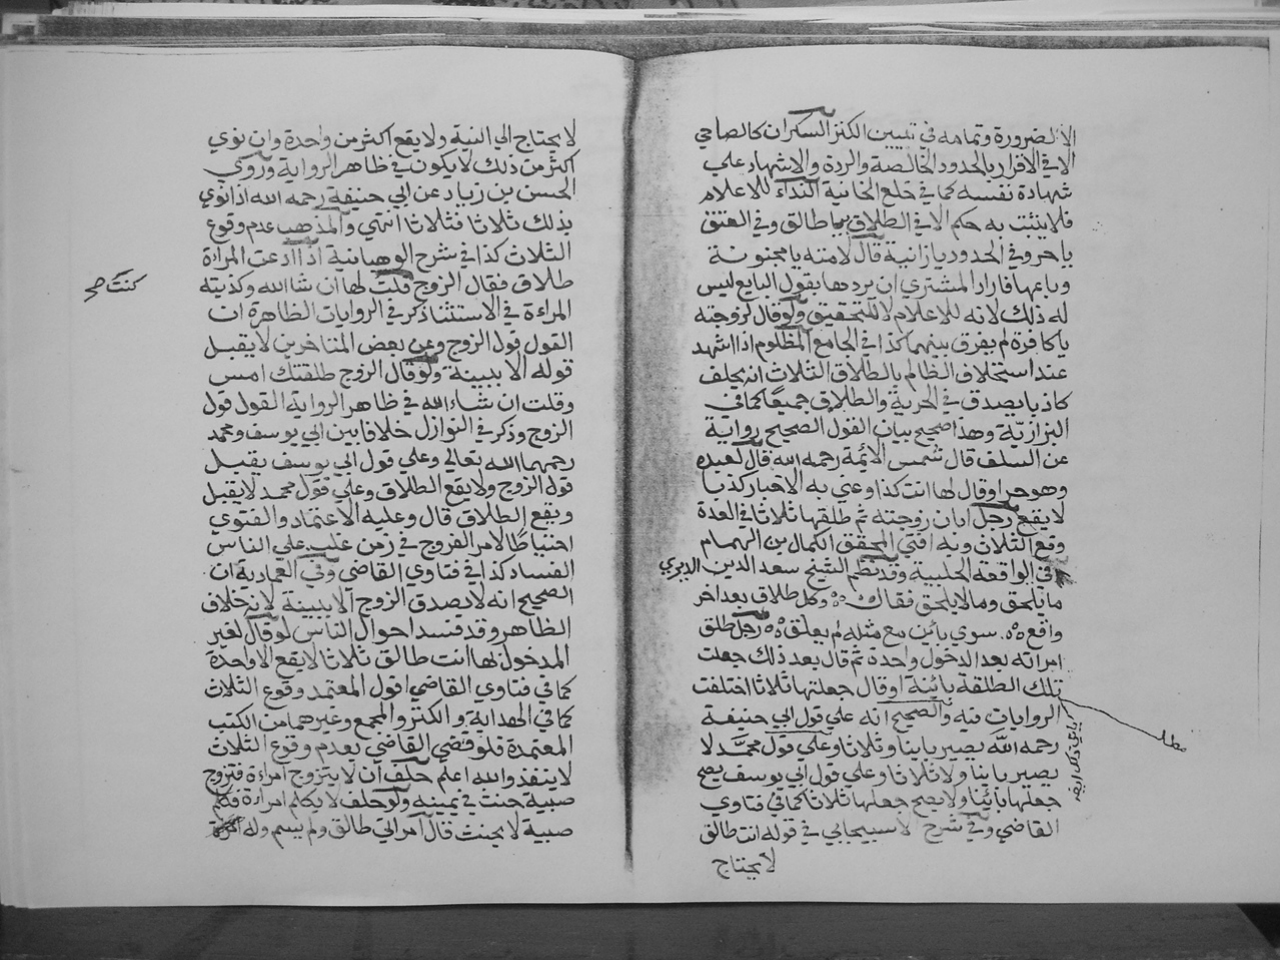 الا لضرورة وتمامه في تبيين الكنز السكران كالصاحي
الا في الاقرار بالحدود الخالصة والردة والاشهاد علي
شهادة نفسه كما في خلع الخانية النداء للاعلام
فلا يثبت به حكم الا في الطلاق بيا طالق وفي العتق
يا حر وفي الحدود يا زانية قال لامته يا مجنونة
وباعها فاراد المشتري ان يردها بقول البايع ليس
له ذلك لانه للاعلام لا للتحقيق ولو قال لزوجته
يا كافرة لم يفرق بينهما كذا في الجامع المظلوم اذا اشهد
عند استحلاف الظالم بالطلاق الثلاث انه يحلف
كاذبا يصدق في الحرية والطلاق جميعا كما في
البزازية وهذا صحيح بيان القول الصحيح رواية
عن السلف قال شمس الائمة رحمه الله قال لعبده
وهو حر او قال لها انت كذا وعني به الاخبار كذبا
لا يقع رجل ابان زوجته ثم طلقها ثلاثا في العدة
وقع الثلاث وبه افتي المحقق الكمال بن الهمام
في الواقعة الحلبية وقد نظم الشيخ سعد الدين الديري
ما يلحق وما لا يلحق فقال وكل طلاق بعد اخر
واقع سوي بائن مع مثله لم يعلق رجل طلق
امراته بعد الدخول واحدة ثم قال بعد ذلك جعلت
تلك الطلقة بائنة او قال جعلتها ثلاثا اختلفت
الروايات فيه والصحيح انه علي قول ابي حنيفة
رحمه الله يصير باينا وثلاثا وعلي قول محمد لا
يصير باينا ولا ثلاثا وعلي قول ابي يوسف يصح
جعلها بائنا ولا يصح جعلها ثلاثا كما في فتاوي
القاضي وفي شرح الاسبيجابي في قوله انت طالق
لا يحتاج
لا يحتاج الي النية ولا يقع اكثر من واحدة وان نوي
اكثر من ذلك لا يكون في ظاهر الرواية وروي
الحسن بن زياد عن ابي حنيفة رحمه الله اذا نوي
بذلك ثلاثا فثلاثا انتهي والمذهب عدم وقوع
الثلاث كذا في شرح الوهبانية اذا ادعت المراة
طلاق فقال الزوج قلت لها ان شا الله وكذبته
كنت صح
المراءة في الاستثنا ذكر في الروايات الظاهرة ان
القول قول الزوج وعن بعض المتاخرين لا يقبل
قوله الا ببينة ولو قال الزوج طلقتك امس
وقلت ان شاء الله في ظاهر الرواية القول قول
الزوج وذكر في النوازل خلافا بين ابي يوسف ومحمد
رحمهما الله تعالي وعلي قول ابي يوسف يقبل
قول الزوج ولا يقع الطلاق وعلي قول محمد لا يقبل
ويقع الطلاق قال وعليه الاعتماد والفتوي
احتياطا لامر الفروج في زمن غلب علي الناس
الفساد كذا في فتاوي القاضي وفي العمادية ان
الصحيح انه لا يصدق الزوج الا ببينة لانه خلاف
الظاهر وقد فسد احوال الناس لو قال لغير
المدخول بها انت طالق ثلاثا لا يقع الا واحدة
كما في فتاوي القاضي اقول المعتمد وقوع الثلاث
كما في الهداية والكنز والمجمع وغيرهما من الكتب
المعتمدة فلو قضي القاضي بعدم وقوع الثلاث
لا ينفذ والله اعلم حلف ان لا يتزوج امراءة فتزوج
صبية حنث في يمينه ولو حلف لا يكلم امراءة فكلم
صبية لا يحنث قال امراتي طالق ولم يسم وله